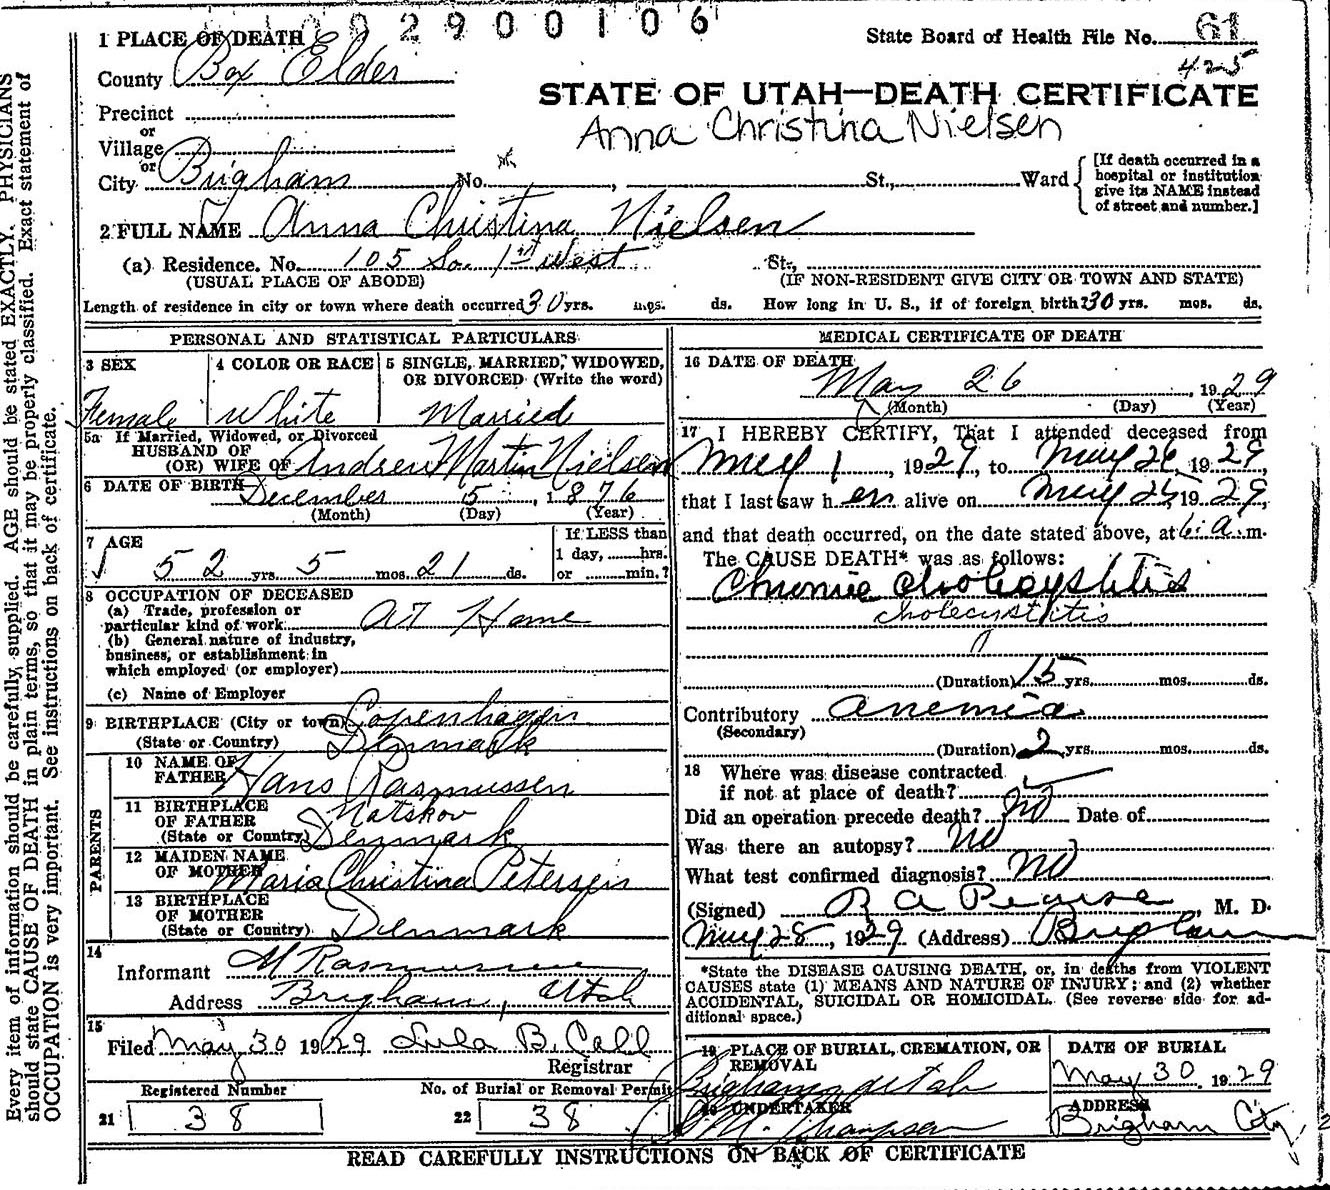 2900106
State Board of Health File No. 61
425
1 PLACE OF DEATH
County Box Elder
STATE OF UTAH—DEATH CERTIFICATE
Precinct
or
Village
or
Anna Christina Nielsen
City Brigham No. , St., Ward
[If death occurred in a hospital or institution give its NAME instead of street and number.]
2 FULL NAME Anna Christina Nielsen
(a) Residence. No. 105 So. 1st West St.,
(USUAL PLACE OF ABODE) (IF NON-RESIDENT GIVE CITY OR TOWN AND STATE)
Length of residence in city or town where death occurred 30 yrs. mos. ds. How long in U. S., if of foreign birth? 30 yrs. mos. ds.
PERSONAL AND STATISTICAL PARTICULARS
3 SEX
Female
4 COLOR OR RACE
White
5 SINGLE, MARRIED, WIDOWED,
OR DIVORCED (Write the word)
Married
5a If Married, Widowed, or Divorced
HUSBAND OF
(OR) WIFE OF Andrew Martin Nielsen
6 DATE OF BIRTH December 5, 1876
(Month) (Day) (Year)
7 AGE
52 yrs. 5 mos. 21 ds.
If LESS than
1 day, hrs.
or min.?
8 OCCUPATION OF DECEASED
(a) Trade, profession or
particular kind of work At Home
(b) General nature of industry,
business, or establishment in
which employed (or employer)
(c) Name of Employer
9 BIRTHPLACE (City or town) Copenhagen
(State or Country) Denmark
PARENTS
10 NAME OF
FATHER Hans Rasmussen
11 BIRTHPLACE
OF FATHER Natskov
(State or Country) Denmark
12 MAIDEN NAME
OF MOTHER Maria Christina Petersen
13 BIRTHPLACE
OF MOTHER
(State or Country) Denmark
14
Informant M Rasmussen
Address Brigham, Utah
15
Filed May 30 1929 Lula B. Call
Registrar
Registered Number
21 38
No. of Burial or Removal Permit
22 38
MEDICAL CERTIFICATE OF DEATH
16 DATE OF DEATH
May 26, 1929
(Month) (Day) (Year)
17 I HEREBY CERTIFY, That I attended deceased from
May 1, 1929, to May 26, 1929,
that I last saw her alive on May 25, 1929,
and that death occurred, on the date stated above, at 6 a.m.
The CAUSE DEATH* was as follows:
Chronic Cholecystitis
cholecystitis
(Duration) 15 yrs. mos. ds.
Contributory Anemia
(Secondary)
(Duration) 2 yrs. mos. ds.
18 Where was disease contracted
if not at place of death?
Did an operation precede death? No Date of
Was there an autopsy? No
What test confirmed diagnosis? No
(Signed) R A Pearse, M. D.
May 28, 1929 (Address) Brigham
*State the DISEASE CAUSING DEATH, or, in deaths from VIOLENT
CAUSES state (1) MEANS AND NATURE OF INJURY; and (2) whether
ACCIDENTAL, SUICIDAL OR HOMICIDAL. (See reverse side for ad-
ditional space.)
19 PLACE OF BURIAL, CREMATION, OR
REMOVAL
Brigham, Utah
DATE OF BURIAL
May 30, 1929
20 UNDERTAKER
M. Thompson
ADDRESS
Brigham City,
READ CAREFULLY INSTRUCTIONS ON BACK OF CERTIFICATE
Every item of information should be carefully supplied. AGE should be stated EXACTLY. PHYSICIANS
should state CAUSE OF DEATH in plain terms, so that it may be properly classified. Exact statement of
OCCUPATION is very important. See instructions on back of certificate.